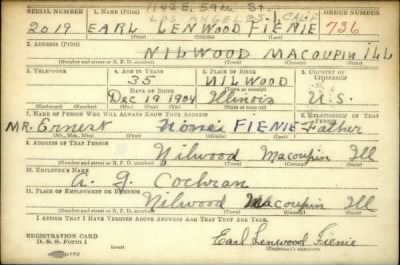 1142 E. 59th St.
LOS ANGELES, CALIF
SERIAL NUMBER 1. NAME (Print) ORDER NUMBER
2019 EARL LENWOOD FIENIE 736
(First) (Middle) (Last)
2. ADDRESS (Print)
NILWOOD MACOUPIN ILL
(Number and street or R. F. D. number) (Town) (County) (State)
3. TELEPHONE 4. AGE IN YEARS 5. PLACE OF BIRTH 6. COUNTRY OF CITIZENSHIP
35 NILWOOD
DATE OF BIRTH (Town or county)
Dec 19 1904 Illinois U.S.
(Exchange) (No.) (Mo.) (Day) (Yr.) (State or country)
7. NAME OF PERSON WHO WILL ALWAYS KNOW YOUR ADDRESS 8. RELATIONSHIP OF THAT PERSON
MR. Ernest FIENIE Father
(Mr., Mrs., Miss) (First) (Middle) (Last)
9. ADDRESS OF THAT PERSON
Nilwood Macoupin Ill
(Number and street or R. F. D. number) (Town) (County) (State)
10. EMPLOYER'S NAME
A. J. Cochran
11. PLACE OF EMPLOYMENT OR BUSINESS
Nilwood Macoupin Ill
(Number and street or R. F. D. number) (Town) (County) (State)
I AFFIRM THAT I HAVE VERIFIED ABOVE ANSWERS AND THAT THEY ARE TRUE.
REGISTRATION CARD
D. S. S. FORM 1
Earl Lenwood Fienie
(Registrant's signature)